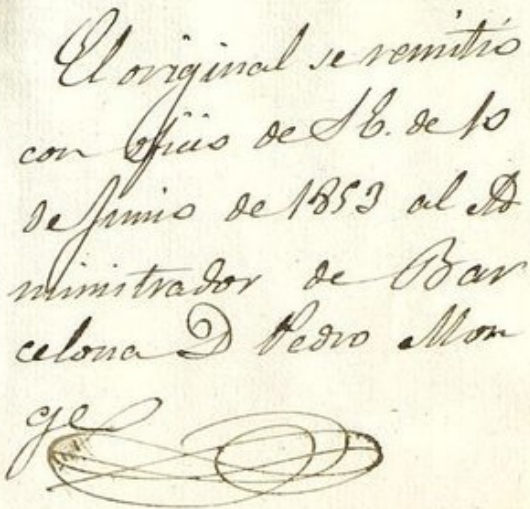 El original se remitió
con oficio de S E. de 10
de Junio de 1853 al Ad
ministrador de Bar
celona D Pedro Mon
ge